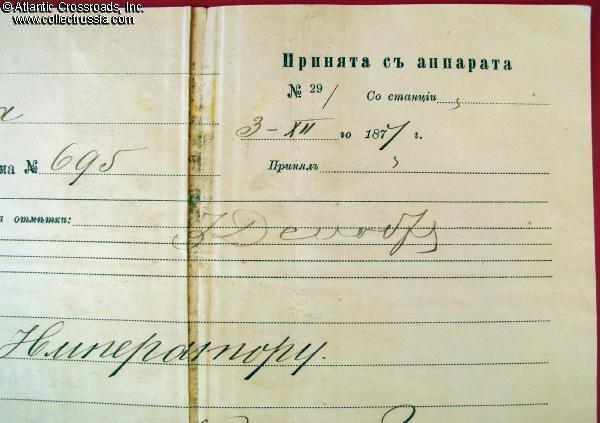 © Atlantic Crossroads, Inc.
www.collectrussia.com
Принята съ аппарата
№ 29/ Со станціи
а
3-XII го 1877 г.
ма № 695
Принялъ
я отмѣтки:
Императору.